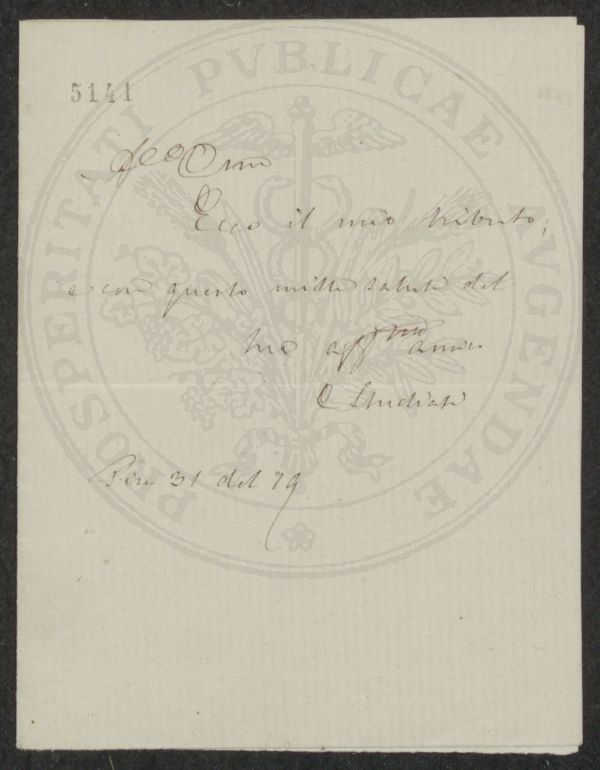 5141
PROSPERITATI PVBLICAE AVGENDAE
A.co Cmo
Ecco il mio tributo;
e con questo mille saluti del
tuo aff.mo amico
C Studiati
Pisa 31 del 79